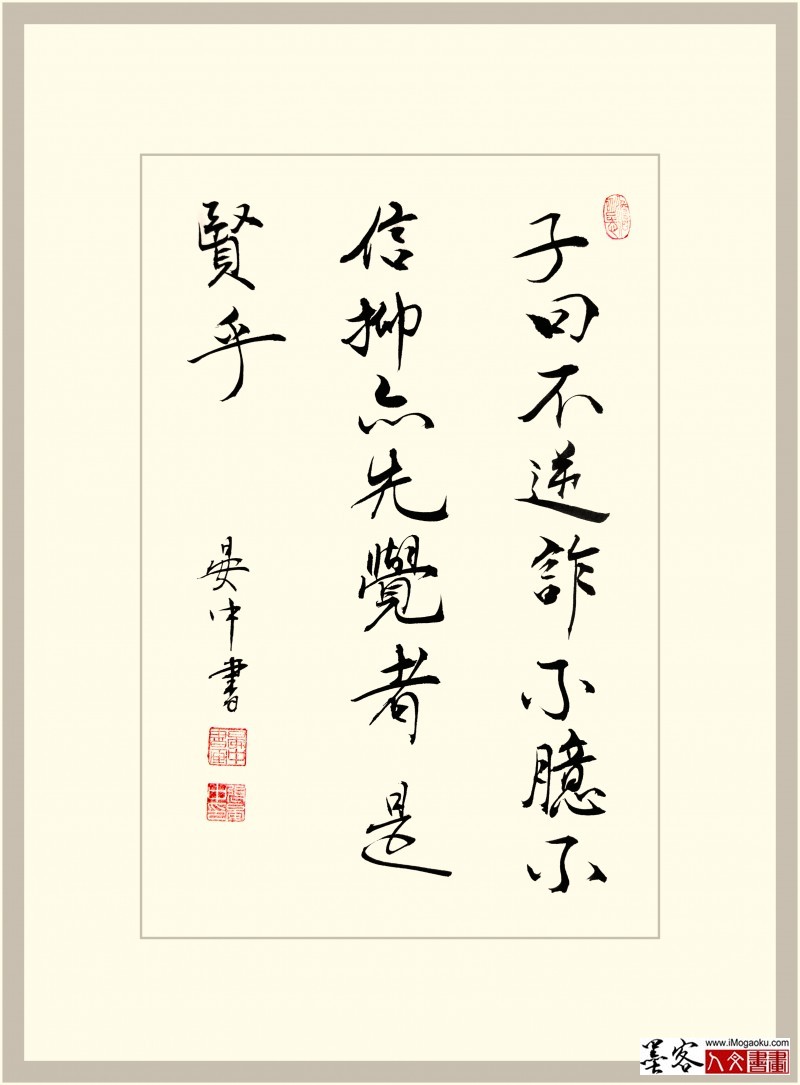 子曰不逆詐不臆不
信抑亦先覺者是
賢乎
晏中書
墨客
www.iMogaoku.com
人文書畫